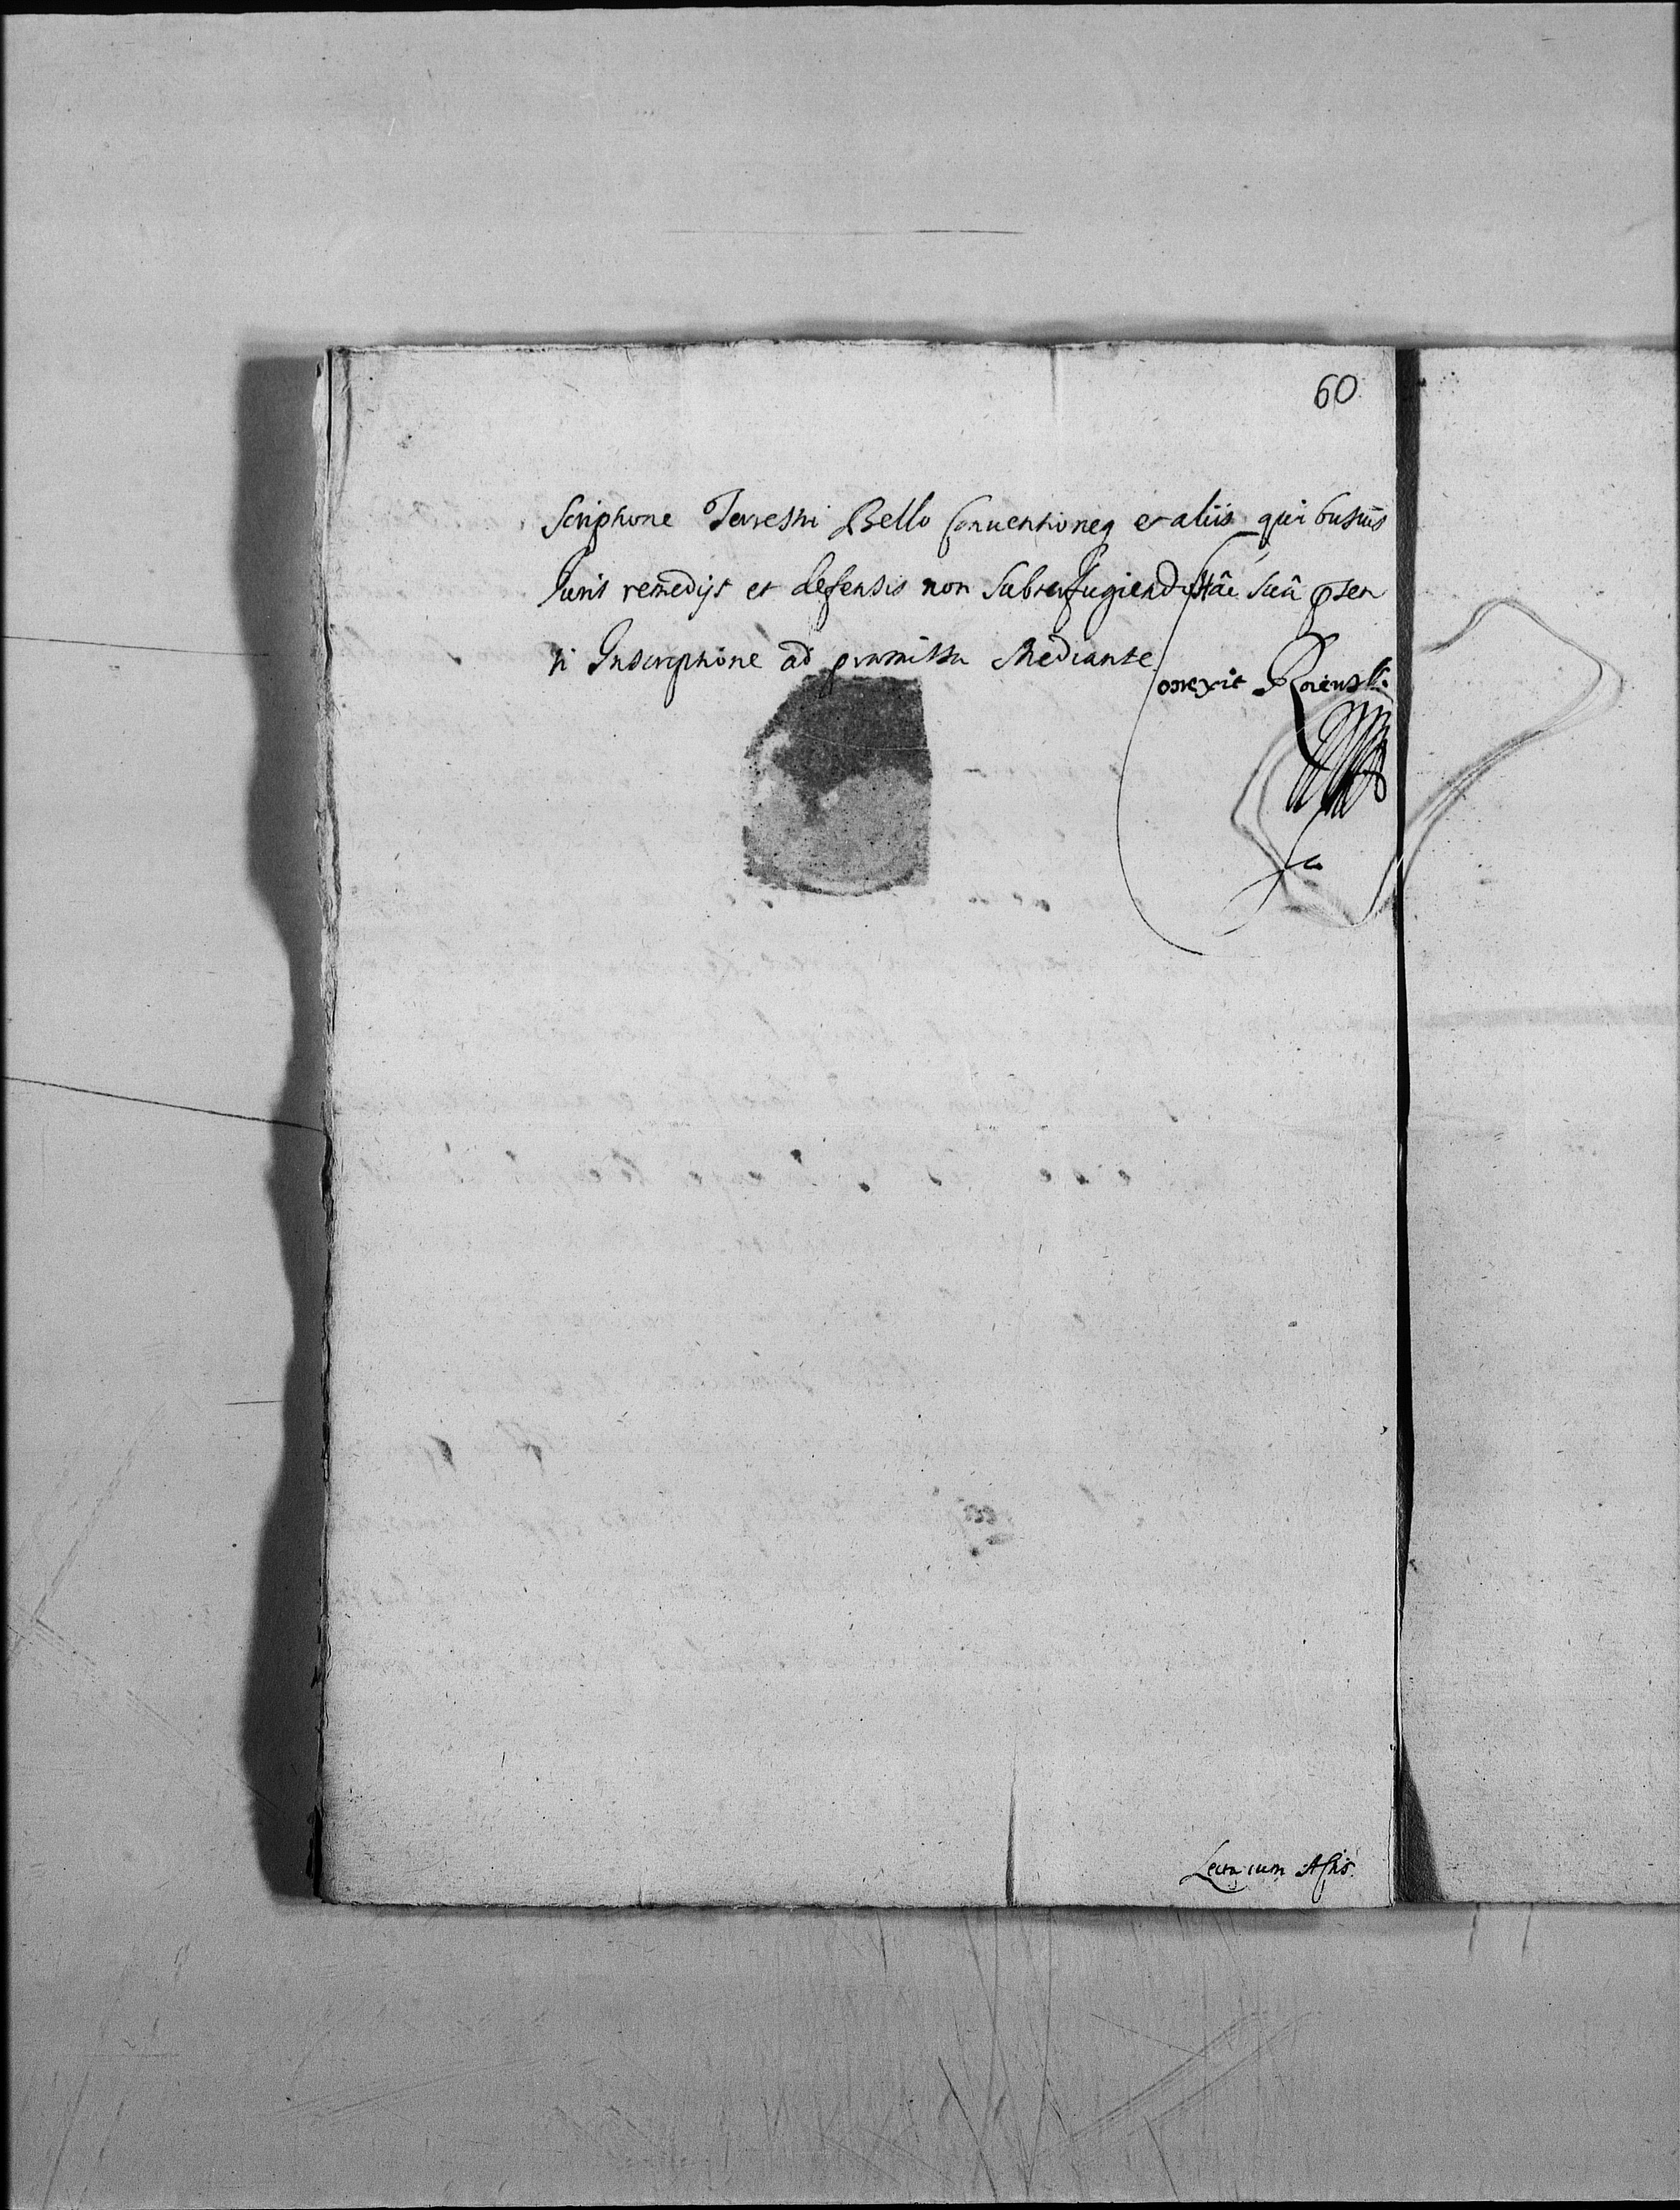 60
scriptione Terrestri Bello Conventioneq et aliis quibusuis
Iuris remedijs et defensis non Subterfugiend Hâc suâ psen
ti Inscriptione ad praemissa Mediante
Correxit
Lecta cum Actis